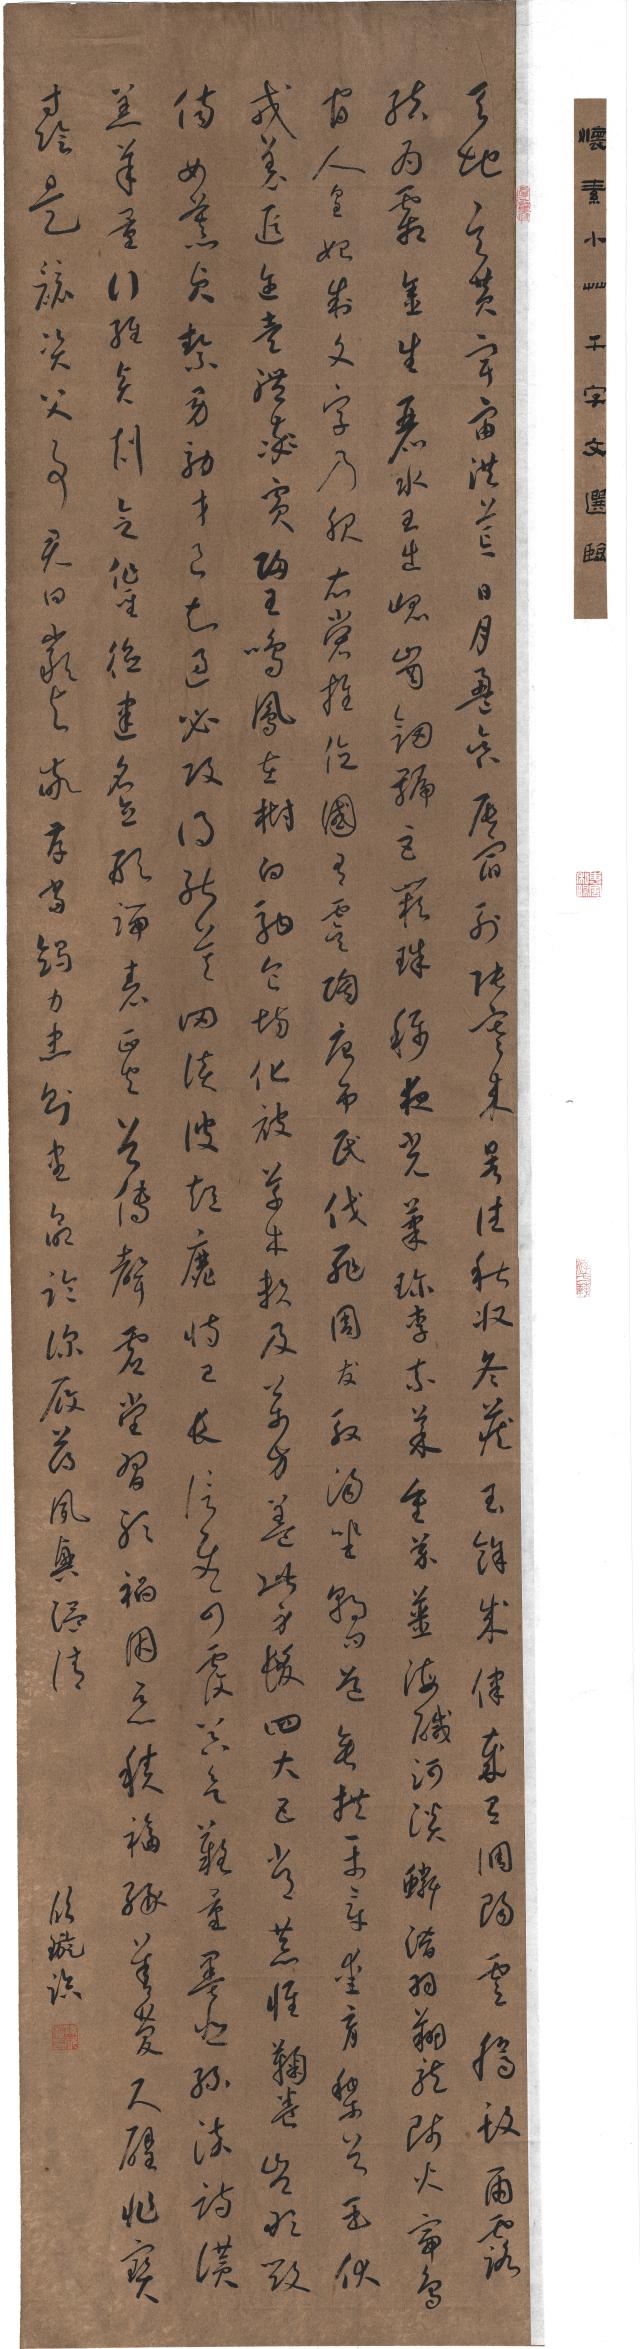 懷素小艸千字文選臨
天地玄黃宇宙洪荒日月盈昃辰宿列張寒來暑往秋收冬藏閏餘成歲律呂調陽雲騰致雨露
結爲霜金生麗水玉出崑崗劒號巨闕珠稱夜光菓珍李柰菜重芥薑海醎河淡鱗潛羽翔龍師火帝鳥
官人皇始制文字乃服衣裳推位國有虞陶唐弔民伐罪周發殷湯坐朝問道垂拱平章愛育黎首臣伏
戎羌遐邇壹體率賓歸王鳴鳳在樹白駒食場化被草木賴及萬方蓋此身髮四大五常恭惟鞠養豈敢毀
傷女慕貞絜男效才良知過必改得能莫罔談彼短靡恃己長信使可覆器欲難量墨悲絲染詩讚
羔羊景行維賢剋念作聖德建名立形端表正空谷傳聲虛堂習聽禍因惡積福緣善慶尺璧非寶
寸陰是競資父事君曰嚴與敬孝當竭力忠則盡命臨深履薄夙興溫凊
欣璇臨